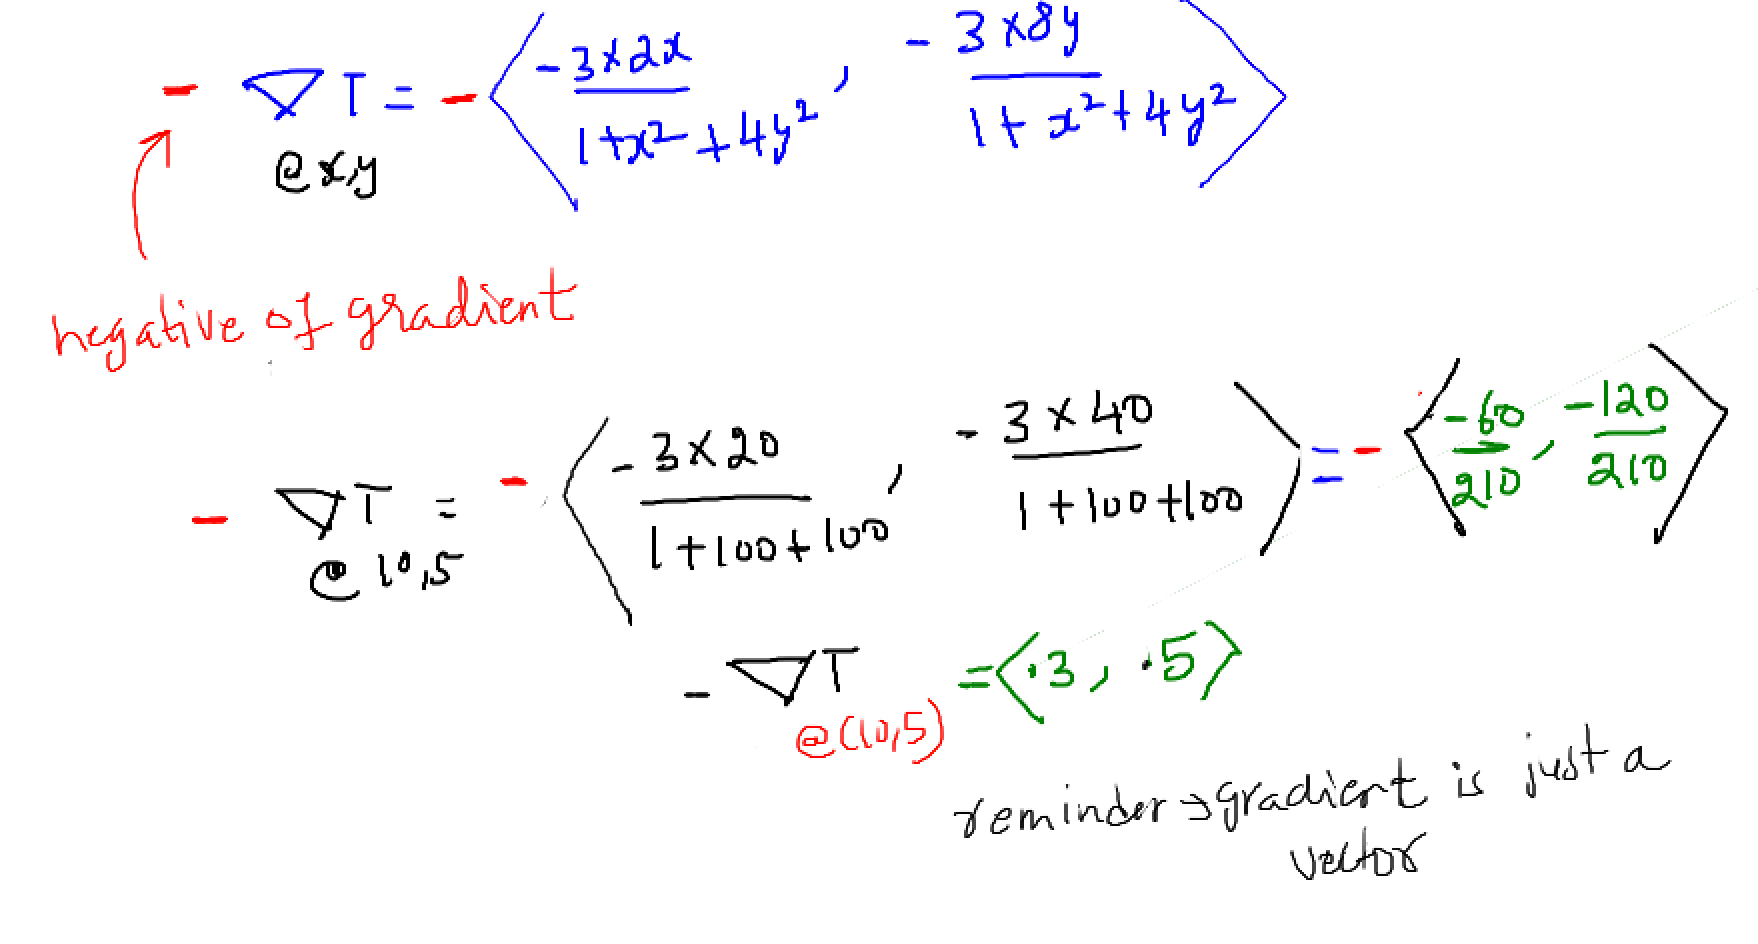 - ∇T = - < -3×2x / 1+x²+4y² , -3×8y / 1+x²+4y² >
@x,y
negative of gradient
- ∇T = - < -3×20 / 1+100+100 , -3×40 / 1+100+100 > = - < -60/210 , -120/210 >
@10,5
- ∇T = <.3, .5>
@(10,5)
reminder → gradient is just a
vector